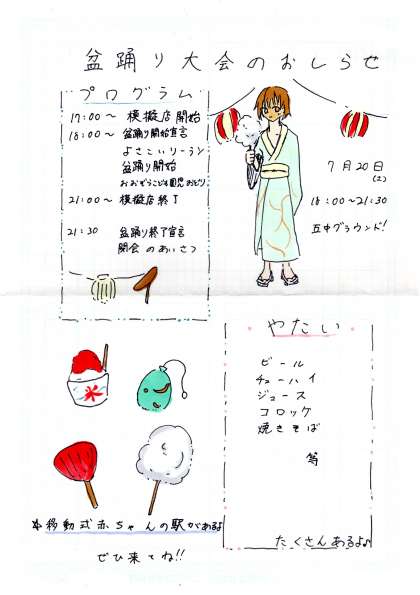 盆踊り大会のおしらせ
プログラム
17:00〜 模擬店開始
18:00〜 盆踊り開始宣言
よさこいソーラン
盆踊り開始
21:00〜 模擬店終了
21:30 盆踊り終了宣言
閉会のあいさつ
7月20日
(土)
18:00〜21:30
五中グラウンド!
氷
やたい
ビール
チューハイ
ジュース
コロッケ
焼きそば
等
たくさんあるよ♪
移動式赤ちゃんの駅があるよ
ぜひ来てね!!